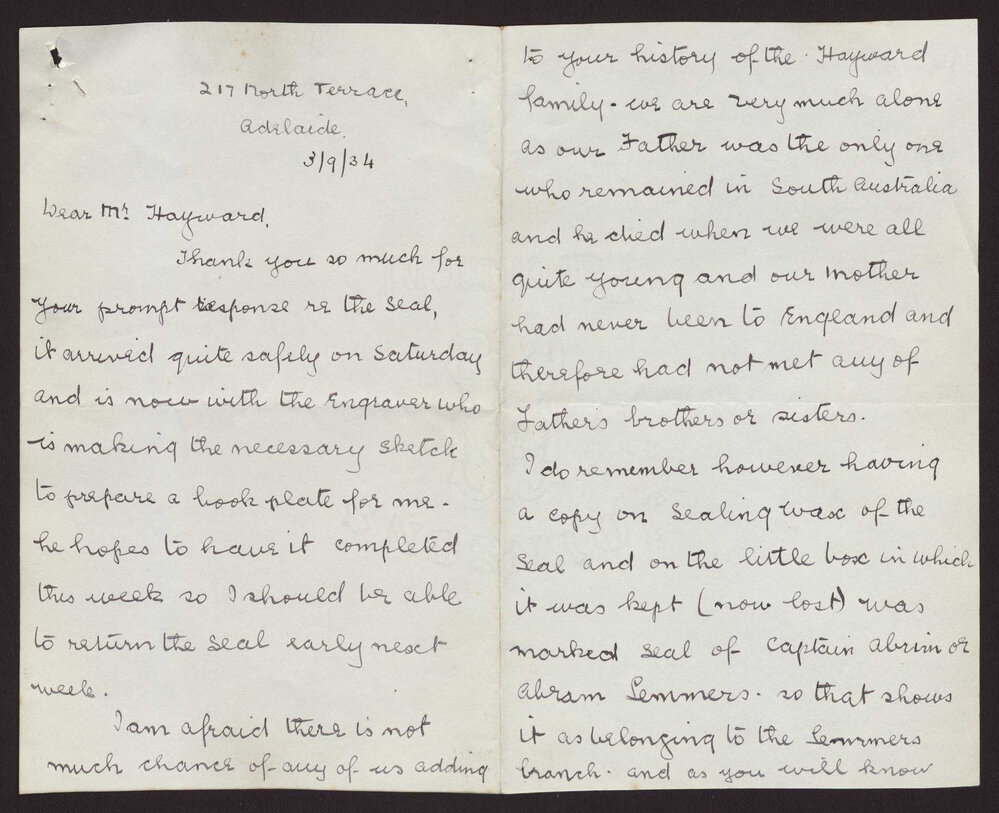 217 North Terrace,
Adelaide.
3/9/34
Dear Mr Hayward,
Thank you so much for
your prompt response re the Seal,
it arrived quite safely on Saturday
and is now with the Engraver who
is making the necessary sketch
to prepare a book plate for me -
he hopes to have it completed
this week so I should be able
to return the seal early next
week.
I am afraid there is not
much chance of any of us adding
to your history of the Hayward
family - we are very much alone
as our Father was the only one
who remained in South Australia
and he died when we were all
quite young and our Mother
had never been to England and
therefore had not met any of
Father's brothers or sisters.
I do remember however having
a copy on Sealing wax of the
Seal and on the little box in which
it was kept (now lost) was
marked Seal of Captain Abrim or
Abram Lemmers. so that shows
it as belonging to the Lemmers
branch. and as you will know